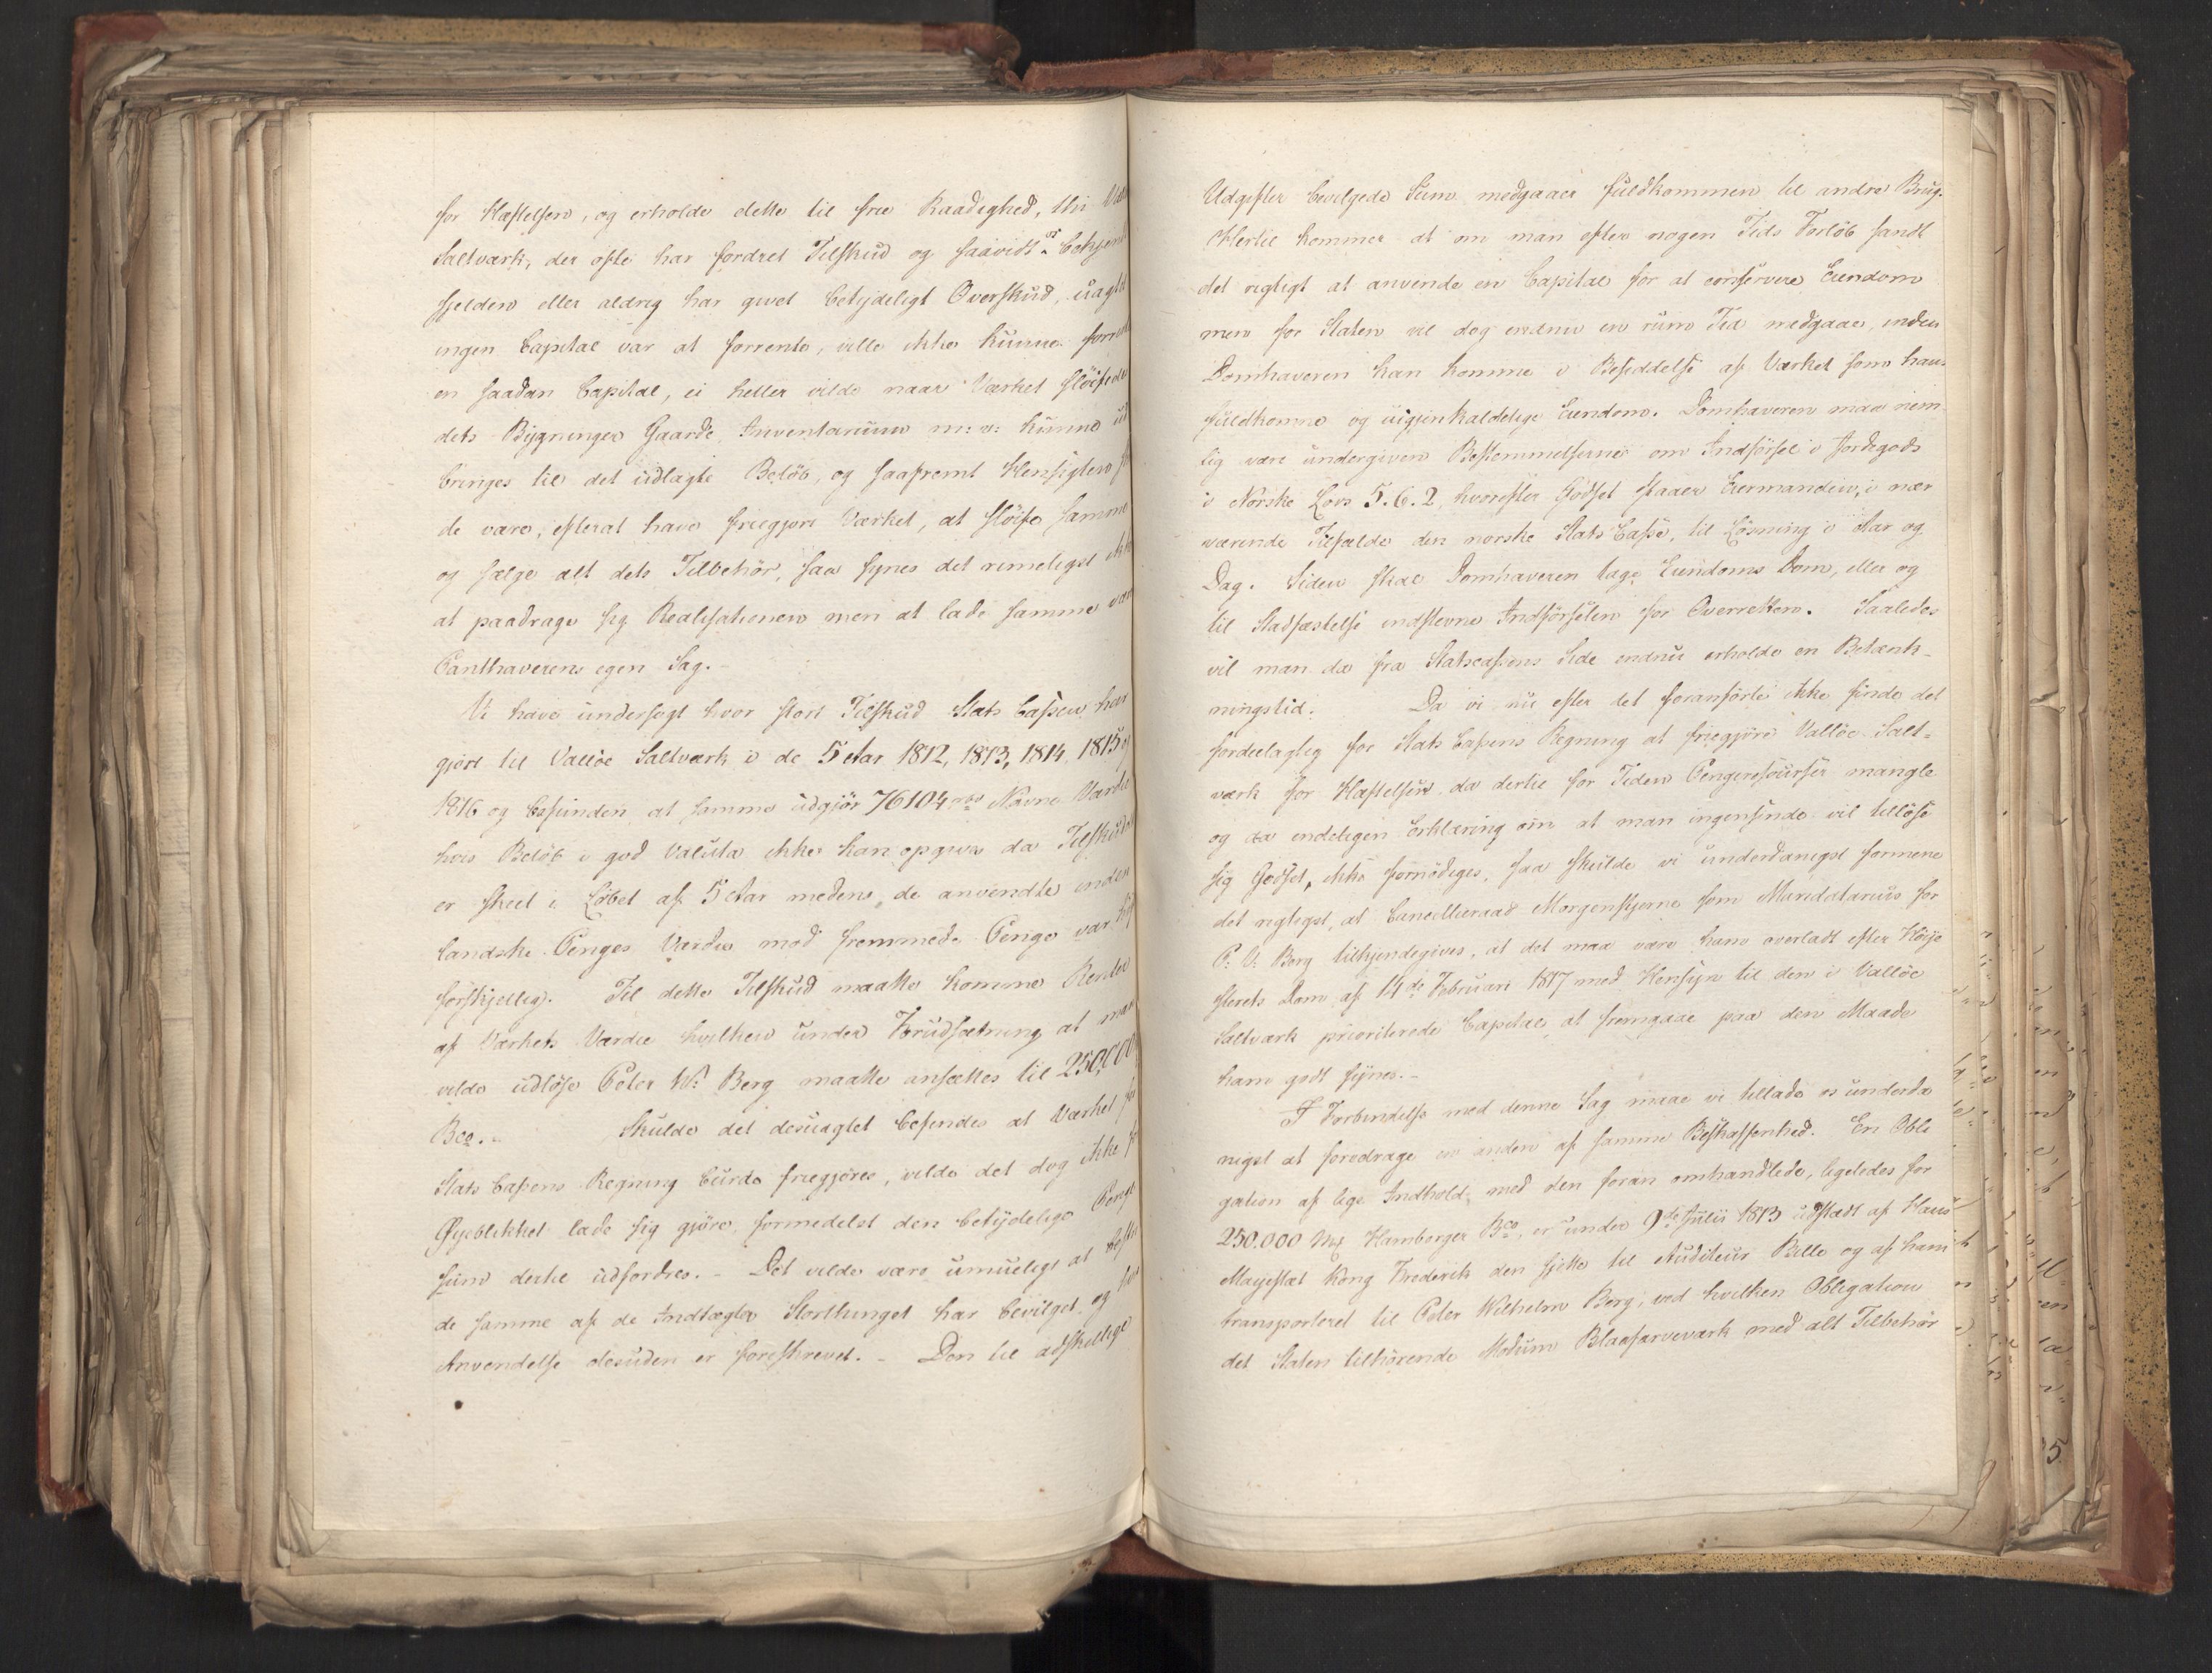 for Hæftelsen, og erholde dette til frie Raadighed, thi
Saltværk, der ofte har fordret Tilskud og saavidt os bekjendt
sjelden eller aldrig har givet betydeligt Overskud, uagtet
ingen Capital var at forrente, ville ikke kunne
en saadan Capital, ei heller vilde naar Værket sløifedes
dets Bygninger Gaarde, Inventarium m: v: kunne ud
bringes til det udlagte Beløb, og saafremt Hensigten
de være, efterat have friegjort Værket, at sløife samme
og sælge alt dets Tilbehør, saa synes det rimeligst ikke
at paadrage sig Realisationen men at lade samme være
Panthaverens egen Sag. -
Vi have undersøgt hvor stort Tilskud Stats Cassen har
gjort til Valløe Saltværk i de 5 Aar 1812, 1813, 1814, 1815 og
1816 og befunden at samme udgjør 76104 rbd Navne Værdie
hvis Beløb i god Valuta ikke kan opgives da Tilskudet
er skeet i Løbet af 5 Aar medens de anvendte inden
landske Penges Værdie mod fremmede Penge var
forskjellig. Til dette Tilskud maatte komme Renter
af Værkets Værdie hvilken under Forudsætning at man
vilde udløse Peter W: Berg maatte ansættes til 250,000
Bco. - Skulde det desuagtet befindes at Værket for
Stats Cassens Regning burde friegjøres, vilde det dog ikke for
Øyeblikket lade sig gjøre, formedelst den betydelige Penge
sum dertil udfordres. - Det vilde være umueligt at bestri
de samme af de Indtægter Storthinget har bevilget, og
Anvendelse desuden er foreskrevet. - Den til adskillige
Udgifter bevilgede Sum medgaaer fuldkommen til andre Brug.
Hertil kommer at om man efter nogen Tids Forløb fandt
det rigtigt at anvende en Capital for at conservere Eiendom
men for Staten vil dog endnu en rum Tid medgaae, inden
Domhaveren kan komme i Besiddelse af Værket som hans
fuldkomne og uigjenkaldelige Eiendom. Domhaveren maa nem-
lig være undergiven Bestemmelserne om Indførsel i Jordegods
i Norske Lovs 5. 6. 2, hvorefter Godset staaer Eiermanden, i nær
værende Tilfælde den norske Stats Casse, til Løsning i Aar og
Dag. Siden skal Domhaveren tage Eiendoms Dom, eller og
til Stadfæstelse indstevne Indførselen for Overretten. Saaledes
vil man da fra Statscassens Side endnu erholde en Betænk-
ningstid. Da vi nu efter det foranførte ikke finde det
fordeelagtig for Stats Cassens Regning at friegjøre Valløe Salt-
værk for Hæftelsen da dertil for Tiden Pengeresourser mangle
og da endeligen Erklæring om at man ingensinde vil tilløse
sig Godset, ikke fornødiges, saa skulde vi underdanigst formene
det rigtigst, at Cancellieraad Morgenstjerne som Mandatarius for
P: W: Berg tilkjendegives, at det maa være ham overladt efter Høie
sterets Dom af 14de Februari 1817 med Hensyn til den i Valløe
Saltværk prioriterede Capital at fremgaae paa den Maade
ham godt synes. -
I Forbindelse med denne Sag maae vi tillade os underda
nigst at foredrage en anden af samme Beskaffenhed. En Obli
gation af lige Indhold med den foran omhandlede, ligeledes for
250.000 Mk Hamborger Bco, er under 9de Julii 1813 udstædt af Hans
Mayestæt Kong Frederik den sjette til Auditeur Bille og af ham
transporteret til Peter Wilhelm Berg, ved hvilken Obligation
det Staten tilhørende Modum Blaafarveværk med alt Tilbehør